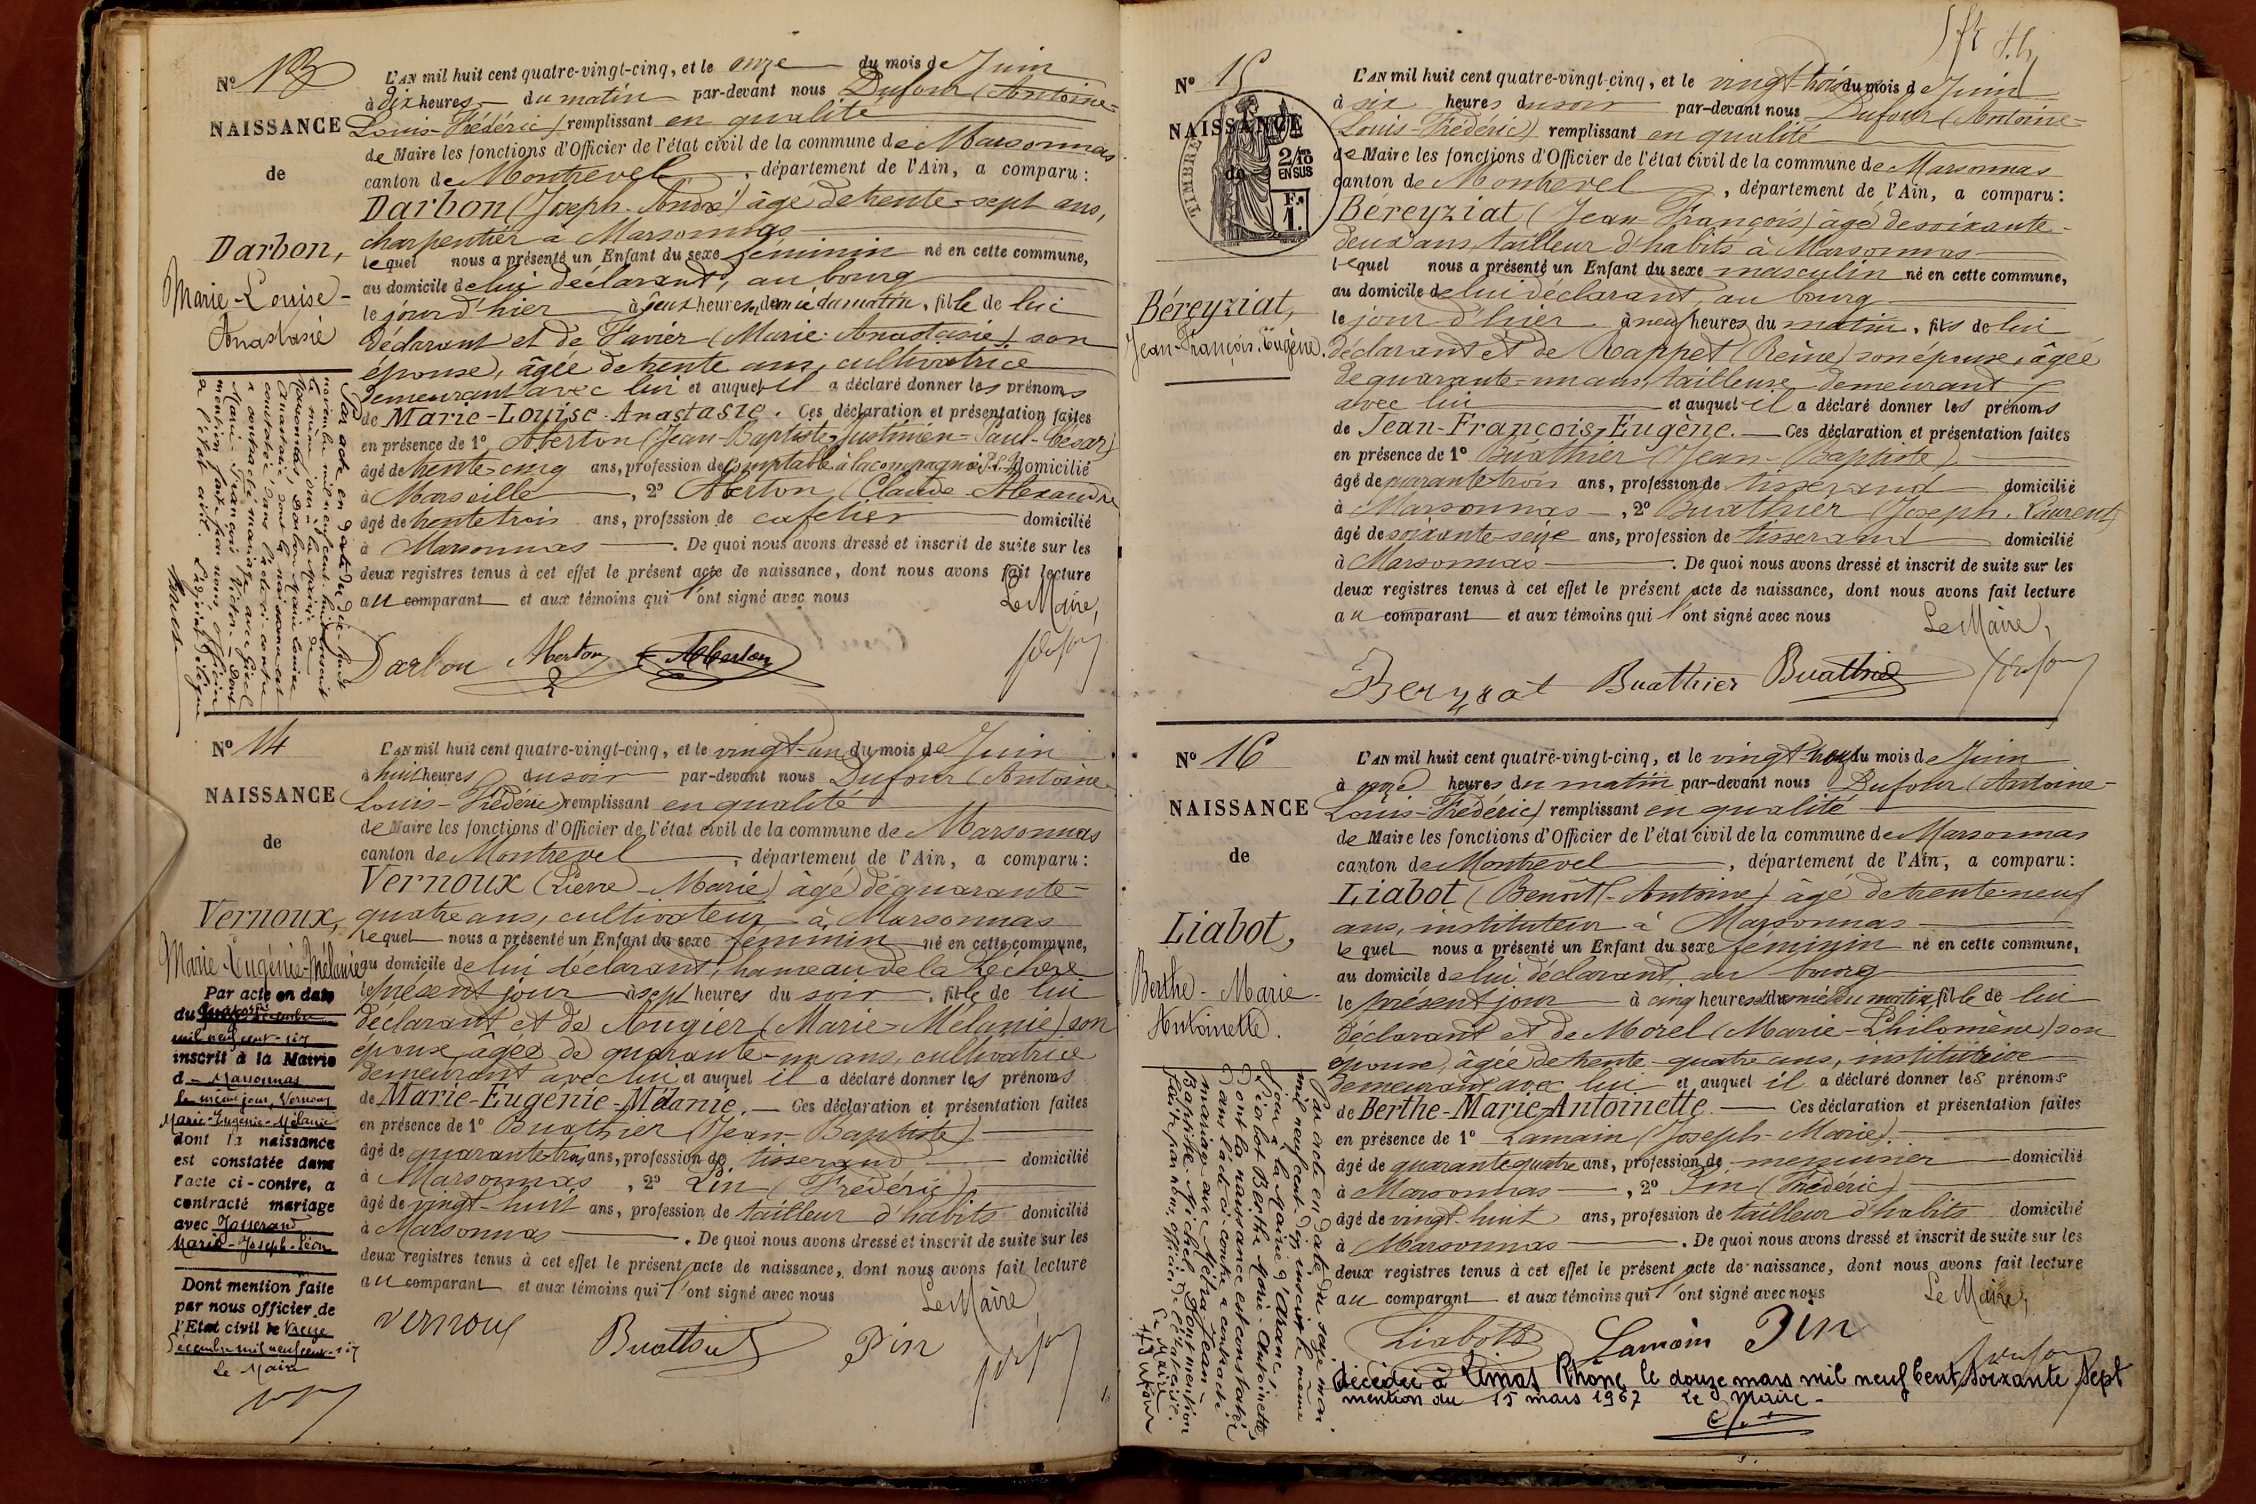 Nº 13
NAISSANCE
de
Darbon,
Marie-Louise-
Anastasie
L'AN mil huit cent quatre-vingt-cinq, et le onze du mois de Juin
à dix heures du matin par-devant nous Dufour (Antoine-
Louis-Frédéric) remplissant en qualité
de Maire les fonctions d'Officier de l'état civil de la commune de Marsonnas
canton de Montrevel, département de l'Ain, a comparu:
Darbon (Joseph-André) âgé de trente-sept ans,
charpentier à Marsonnas
lequel nous a présenté un Enfant du sexe féminin né en cette commune,
au domicile de lui déclarant, au bourg
le jour d'hier à heures demie du matin, fille de lui
déclarant et de Favier (Marie-Anastasie) son
épouse, âgée de trente ans, cultivatrice
demeurant avec lui et auquel il a déclaré donner les prénoms
de Marie-Louise-Anastasie. Ces déclaration et présentation faites
en présence de 1º Aberton (Jean-Baptiste-Justinien-Paul-César)
âgé de trente-cinq ans, profession de comptable à la compagnie domicilié
à Marseille, 2º Aberton (Claude-Alexandre
âgé de trente trois ans, profession de cafetier domicilié
à Marsonnas. De quoi nous avons dressé et inscrit de suite sur les
deux registres tenus à cet effet le présent acte de naissance, dont nous avons fait lecture
au comparant et aux témoins qui l'ont signé avec nous
Le Maire,
Darbon Aberton Aberton
Par acte en date du dix-huit
novembre mil neuf cent huit inscrit
à la Mairie de
Marsonnas, Darbon Marie Louise
Anastasie, dont la naissance est
constatée dans l'acte ci-contre
a contracté mariage avec
Marie-François Victor - Dont
mention faite par nous, officier
de l'état civil. L'adjoint délégué
Nº 14
NAISSANCE
de
Vernoux,
Marie-Eugénie-Mélanie
L'AN mil huit cent quatre-vingt-cinq, et le vingt-un du mois de Juin
à huit heures du soir par-devant nous Dufour (Antoine
Louis-Frédéric) remplissant en qualité
de Maire les fonctions d'Officier de l'état civil de la commune de Marsonnas
canton de Montrevel, département de l'Ain, a comparu:
Vernoux (Pierre-Marie) âgé de quarante-
quatre ans, cultivateur à Marsonnas
lequel nous a présenté un Enfant du sexe féminin né en cette commune,
au domicile de lui déclarant, hameau de la Léchère
le présent jour à sept heures du soir, fille de lui
déclarant et de Augier (Marie-Mélanie) son
épouse, âgée de quarante-un ans, cultivatrice
demeurant avec lui et auquel il a déclaré donner les prénoms
de Marie-Eugénie-Mélanie. Ces déclaration et présentation faites
en présence de 1º Buathier (Jean-Baptiste)
âgé de quarante trois ans, profession de tisserand domicilié
à Marsonnas, 2º Pin (Frédéric)
âgé de vingt-huit ans, profession de tailleur d'habits domicilié
à Marsonnas. De quoi nous avons dressé et inscrit de suite sur les
deux registres tenus à cet effet le présent acte de naissance, dont nous avons fait lecture
au comparant et aux témoins qui l'ont signé avec nous
Le Maire
Vernoux Buathier Pin
Par acte en date
du décembre
mil neuf cent
inscrit à la Mairie
d Marsonnas
le même jour, Vernoux
Marie-Eugénie-Mélanie
dont la naissance
est constatée dans
l'acte ci-contre, a
contracté mariage
avec Josserand
Marie-Joseph-Léon
Dont mention faite
par nous officier de
l'Etat civil le treize
Décembre mil neuf cent
Le Maire
Nº 15
NAISSANCE
de
TIMBRE
2/10 EN SUS
F. 1.
Béreyziat,
Jean-François-Eugène.
L'AN mil huit cent quatre-vingt-cinq, et le vingt-trois du mois de Juin
à six heures du soir par-devant nous Dufour (Antoine-
Louis-Frédéric) remplissant en qualité
de Maire les fonctions d'Officier de l'état civil de la commune de Marsonnas
canton de Montrevel, département de l'Ain, a comparu:
Béreyziat (Jean-François) âgé de soixante-
deux ans, tailleur d'habits à Marsonnas
lequel nous a présenté un Enfant du sexe masculin né en cette commune,
au domicile de lui déclarant, au bourg
le jour d'hier à neuf heures du matin, fils de lui
déclarant et de Rappet (Reine) son épouse, âgée
de quarante-un ans, tailleuse demeurant
avec lui et auquel il a déclaré donner les prénoms
de Jean-François-Eugène. Ces déclaration et présentation faites
en présence de 1º Buathier (Jean-Baptiste),
âgé de quarante trois ans, profession de tisserand domicilié
à Marsonnas, 2º Buathier (Joseph-Laurent)
âgé de soixante-seize ans, profession de tisserand domicilié
à Marsonnas. De quoi nous avons dressé et inscrit de suite sur les
deux registres tenus à cet effet le présent acte de naissance, dont nous avons fait lecture
au comparant et aux témoins qui l'ont signé avec nous
Le Maire,
Buathier Buathier
Nº 16
NAISSANCE
de
Liabot,
Berthe-Marie-
Antoinette.
L'AN mil huit cent quatre-vingt-cinq, et le vingt-neuf du mois de Juin
à onze heures du matin par-devant nous Dufour (Antoine-
Louis-Frédéric) remplissant en qualité
de Maire les fonctions d'Officier de l'état civil de la commune de Marsonnas
canton de Montrevel, département de l'Ain, a comparu:
Liabot (Benoît-Antoine) âgé de trente-neuf
ans, instituteur à Marsonnas
lequel nous a présenté un Enfant du sexe féminin né en cette commune,
au domicile de lui déclarant, au bourg
le présent jour à cinq heures demie du matin, fille de lui
déclarant et de Morel (Marie-Philomène) son
épouse, âgée de trente-quatre ans, institutrice
demeurant avec lui et auquel il a déclaré donner les prénoms
de Berthe-Marie-Antoinette. Ces déclaration et présentation faites
en présence de 1º Lamain (Joseph-Marie).
âgé de quarante quatre ans, profession de menuisier domicilié
à Marsonnas, 2º Pin (Frédéric)
âgé de vingt-huit ans, profession de tailleur d'habits domicilié
à Marsonnas. De quoi nous avons dressé et inscrit de suite sur les
deux registres tenus à cet effet le présent acte de naissance, dont nous avons fait lecture
au comparant et aux témoins qui l'ont signé avec nous
Le Maire,
Liabot Lamain Pin
décédée à Limas Rhône le douze mars mil neuf cent soixante sept
mention du 15 mars 1967 Le Maire
Par acte en date du seize mai
mil neuf cent dix inscrit le même
jour à la Mairie d'
Liabot Berthe Marie-Antoinette,
dont la naissance est constatée
dans l'acte ci-contre, a contracté
mariage avec Métra Jean-
Baptiste Michel, Dont mention
faite par nous, officier de l'état civil.
Le Maire
Dufour